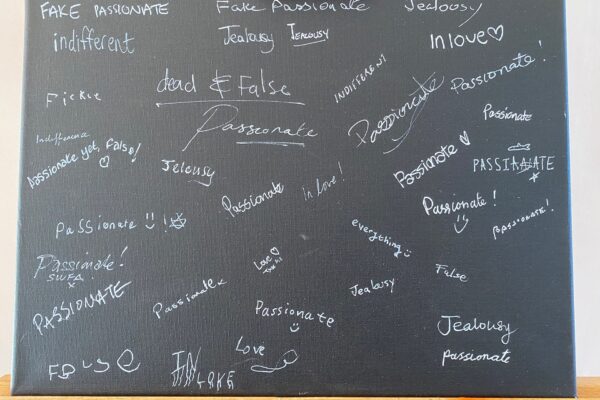 FAKE PASSIONATE
Fake Passionate
Jealousy
indifferent
Jealousy
Jealousy
In love
dead & False
INDIFFERENT
Passionate
Passionate!
Fickle
Passionate
Passionate
Indifference
Passionate yet, False!
Jelousy
Passionate
PASSIONATE
Passionate
in Love!
Passionate!
Passionate!
passionate !
everything
Passionate!
Love
False
PASSIONATE
Passionate
Jealousy
Passionate
Jealousy
passionate
Love
FALSE
IN LOVE